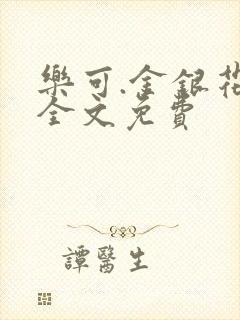 樂可.金銀花
全文免費
譚醫生